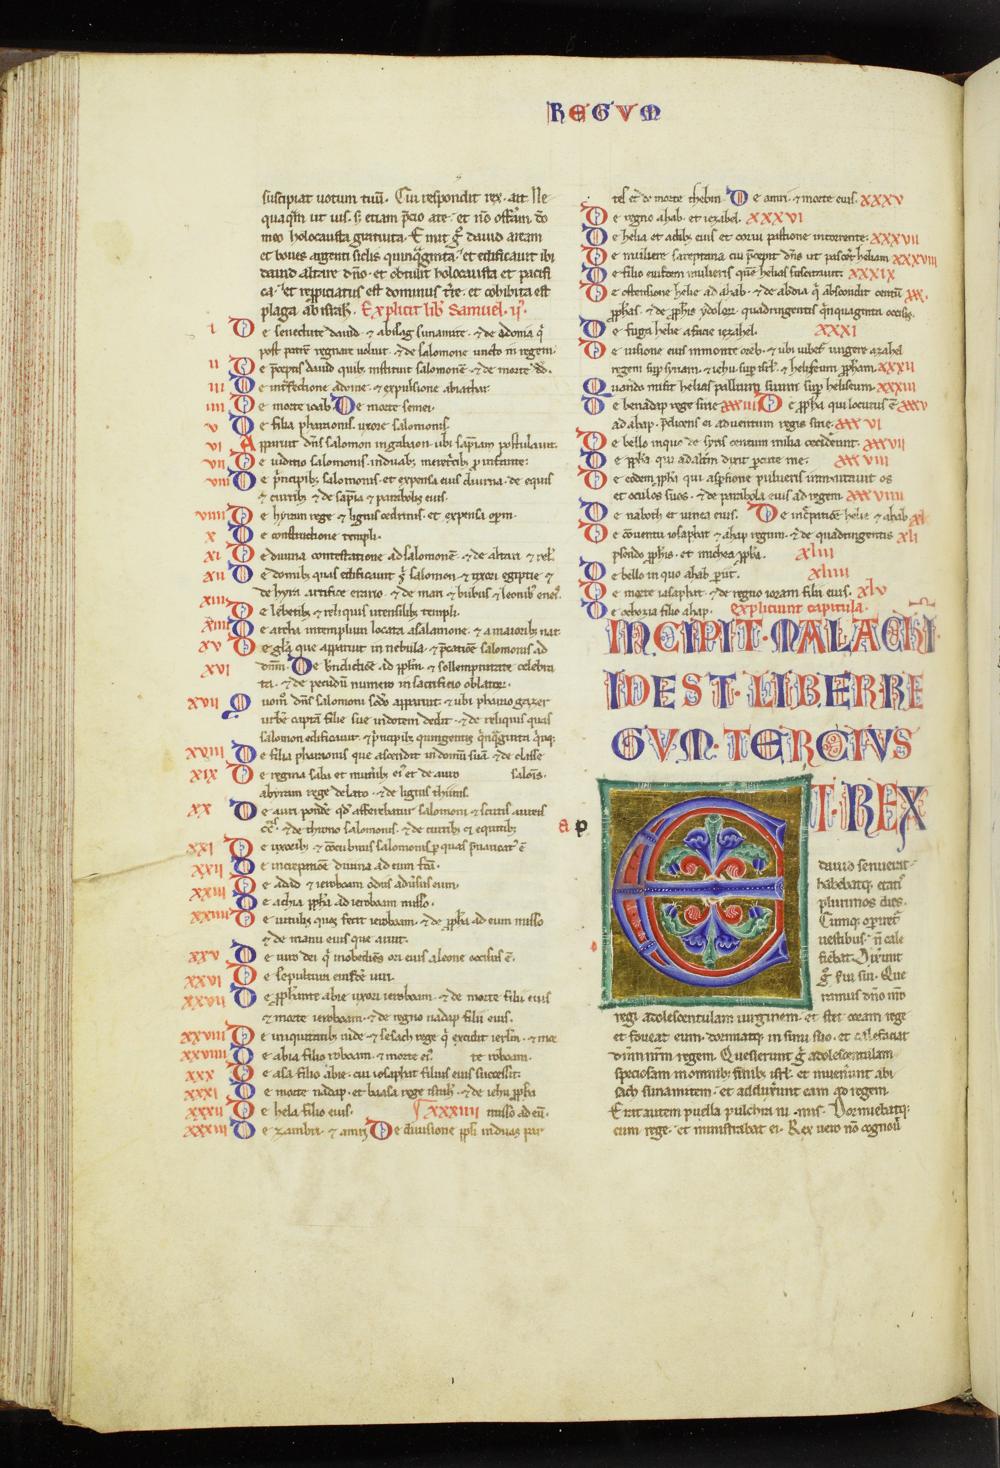 REGVM
suscipiat votum tuū. Cui respondit rex. ait. Ne
quaq̄m ut uis. s; etiam p̄cio a te. et nō offerā dō
meo holocausta gratuita. Emit g̊ dauid aream
et boues argenti siclis quinq̄ginta. et edificauit ibi
dauid altare dn̄o. et obtulit holocausta et pacifi
ca. et repropiciatus est dominus t̄re. et cohibita est
plaga ab israh̄l. Explicit lib̄ Samuel. ij.
i De senectute dauid. ⁊ abisag sunamite. ⁊ de adonia q̄
post patrē regnare uoluit. ⁊ de salomone uncto in regem.
ii De p̄ceptis dauid quib; instituit salomonē. ⁊ de morte d̄d.
iii De int̄fectione adonie. ⁊ expulsione abiathar.
iiii De morte ioab. De morte semei.
v De filia pharaonis. uxore salomonis.
vi Apparuit dn̄s salomon in gabaon. ubi sap̄iam postulauit.
vii De iuditio salomonis. in duab; meret̄cib; p̄ infante.
viii De p̄ncipib; salomonis. et expensa eius diurna. de equis
⁊ currib; ⁊ de sap̄ia ⁊ parabolis eius.
viiii De hyram rege ⁊ lignis cedrinis. et expensa op̄m.
x De constructione templi.
xi De diuina contestatione ad salomonē. ⁊ de altari ⁊ rel'.
xii De domib; quas edificauit s; salomon ⁊ uxori egiptie ⁊
de hyram artifice erario. ⁊ de mari ⁊ bubus ⁊ leonib; eneis.
xiii De lebetib; ⁊ reliquis utensilib; templi.
xiiii De archa in templum locata a salomone. ⁊ a maiorib; nat.
xv De gl̄a que apparuit in nebula. ⁊ p̄catiōe salomonis ad
xvi dnm̄. De bn̄dictiōe ad ppl̄m. ⁊ sollempnitate celebra
ta. ⁊ de pecudū numero in sacrificio oblator̄.
xvii Quom̊ dn̄s salomoni sc̄do apparuit. ⁊ ubi pharao gazer
urbē captā filie sue in dotem dedit. ⁊ de reliquis quas
salomon edificauit. ⁊ p̄ncipib; quingentis q̄nq̄ginta q̄nq;.
xviii De filia pharaonis que ascendit in domū suā. ⁊ de classe
xix De regina saba et munib; ei' et de auro salōis.
ab yram rege delato. ⁊ de lignis thinis.
xx De auri ponde q̄d afferebatur salomoni. ⁊ scutis aureis
⁊ de throno salomonis. ⁊ de currib; ⁊ equitib;
xxi De uxorib; ⁊ c̄cubinis salomonis p̄ quas p̄uaricat' ē
xxii De increpatiōe diuina ad eum f̄ca.
De adad ⁊ ieroboam odiis aduersus eum.
xxiii De achia pph̄a ad ieroboam misso.
xxiiii De uitulis quos fecit ieroboam. ⁊ de pph̄a ad eum misso
⁊ de manu eius que aruit.
xxv De uiro dei q̄ inobediēs ori eius a leone occisus ē.
xxvi De sepultura eiusdē uiri.
xxvii De pph̄ante abie uxori ieroboam. ⁊ de morte filii eius
⁊ morte ieroboam. ⁊ de regno nadap filii eius.
xxviii De iniquitatib; iude. ⁊ sesach rege q̄ excidit ierl̄m. ⁊ mor
xxviiii De abia filio roboam. ⁊ morte ei'. te roboam.
xxx De asa filio abie. cui iosaphat filius eius successit.
xxxi De morte nadap. et baasa rege isrl̄'. ⁊ de ieu pph̄a
xxxii De hela filio eius. xxxiiii misso ad eū.
xxxiii De zambri. ⁊ amri. De diuisione ppl̄i in duas par
tes et de morte thebni. De amri. ⁊ morte eius. xxxv
De regno ahab. et iezabel. xxxvi
De helia et adib; eius et corui pastione in torrente. xxxvii
De muliere sareptana cui p̄cepit dn̄s ut pasceret heliam xxxviii
De filio eiusdem mulieris quē helias suscitauit. xxxix
De ostensione helie ad ahab. ⁊ de abdia q̄ abscondit centū xxx.
pphas. ⁊ de pph̄is ydolor̄. quadringentis q̄nquaginta occisis.
De fuga helie a facie iezabel. xxxi
De uisione eius in monte oreb. ⁊ ubi iubet' ungere azahel
regem sup̄ syriam. ⁊ iehu sup̄ isrl̄'. ⁊ heliseum pph̄am. xxxii
Quando misit helias pallium suum sup̄ heliseum. xxxiii
De benadap rege sirie xxxiiii De pph̄a qui locutus ē xxxv
ad ahap. p̄dicens ei aduentum regis sirie. xxxvi
De bello in quo de syris centum milia ceciderunt. xxxvii
De pph̄a qui ad alt̄m dixit percute me. xxxviii
De eodem pph̄a qui asp̄sione pulueris inmutauit os
et oculos suos. ⁊ de parabola eius ad regem. xxxviiii
De naboth et uinea eius. De inc̄patiōe helie ⁊ ahab xl
De cōuentu iosaphat ⁊ ahap regum. ⁊ de quadringentis xli
pseudo pph̄is. et michea pph̄a. xliii
De bello in quo ahab periit. xliiii
De morte iosaphat. ⁊ de regno ioram filii eius. xlv
De ochozia filio ahap. Expliciunt capitula.
INCIPIT. MALACHI.
IDEST. LIBER RE
GVM. TERCIVS
ET. REX
a p
dauid senuerat.
habebatq; etati'
plurimos dies.
Cumq; operiret'
uestibus. n̄ cale
fiebat. Dixerunt
g̊ ei serui sui. Que
ramus dn̄o nr̄o
regi adolescentulam uirginem. et stet coram rege
et foueat eum. dormiatq; in sinu suo. et calefaciat
dominum nr̄m regem. Quesierunt g̊ adolescentulam
speciosam in omnib; finib; isrl̄'. et inuenerunt abi
sach sunamitem. et adduxerunt eam ad regem.
Erat autem puella pulchra nimis. Dormiebatq;
cum rege. et ministrabat ei. Rex uero nō cognou